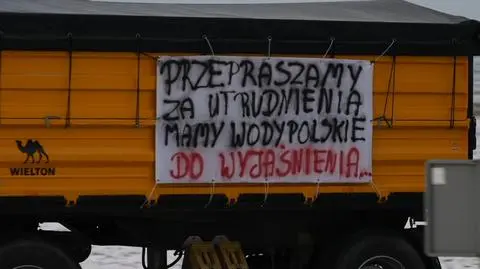 PRZEPRASZAMY
ZA UTRUDNIENIA
MAMY WODY POLSKIE
DO WYJAŚNIENIA...
WIELTON